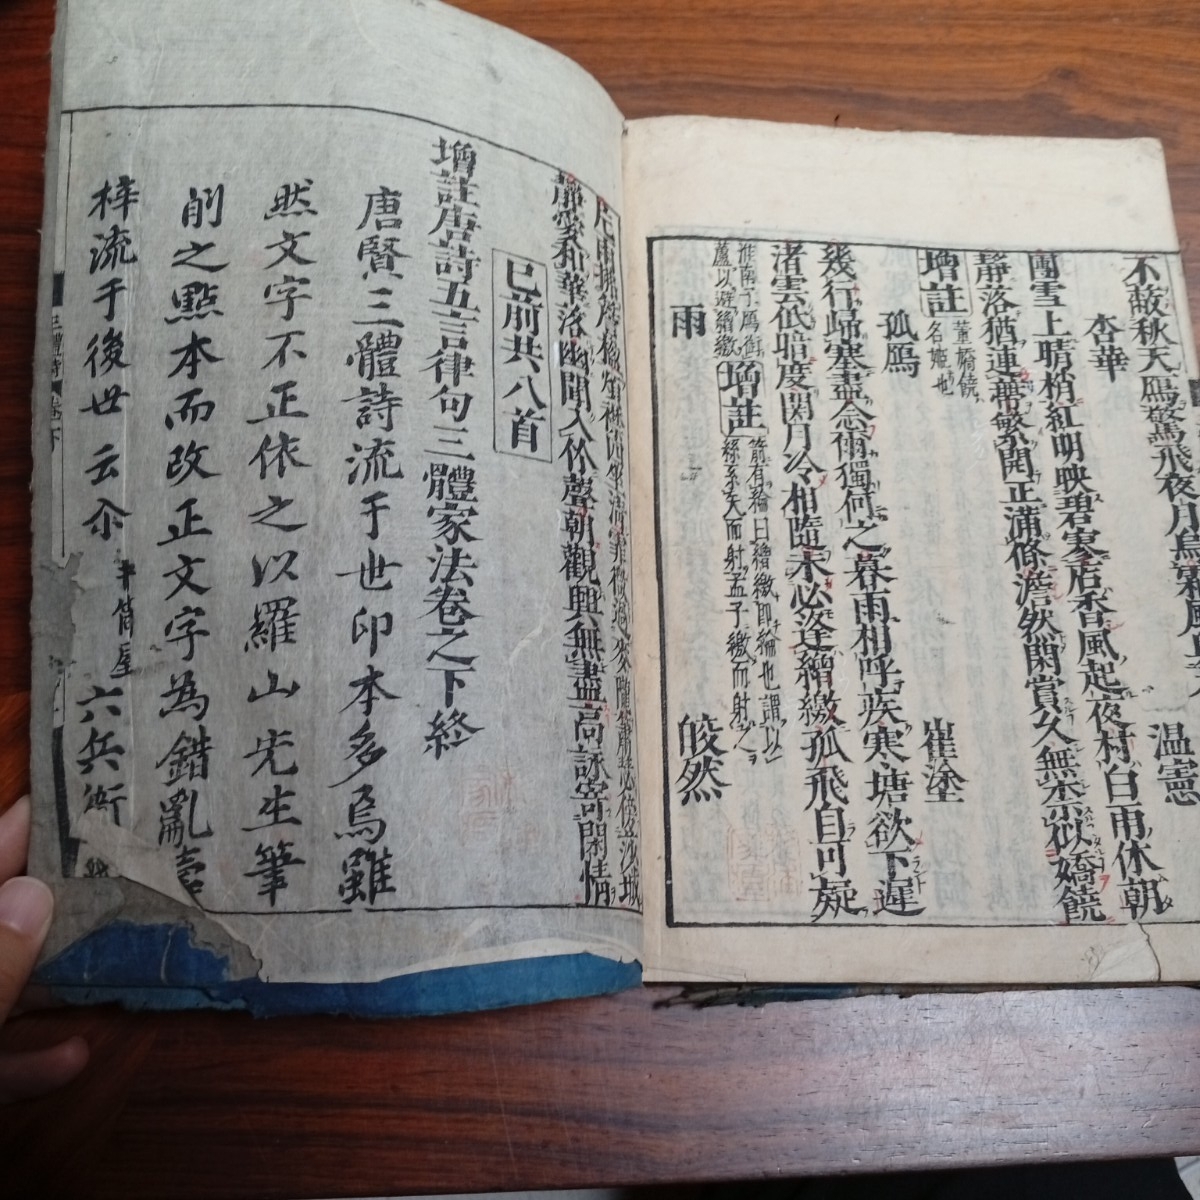 不蔽秋天鴈驚飛夜月烏霜風
杏華
温憲
團雪上晴梢紅明映碧寥店香風起夜村白雨休朝
靜落猶連蔕繁開正滿條澹然閑賞久無以破妖嬈
増註
董嬌饒
名姬也
孤鴈
崔塗
幾行歸塞盡念爾獨何之暮雨相呼疾寒塘欲下遲
渚雲低暗度関月冷相隨未必逢矰繳孤飛自可疑
淮南子鴈銜
蘆以避繒繳
増註
箭有綸曰繒繳即綸也謂以
絲系矢而射孟子繳而射之
雨
皎然
靜愛和華落幽聞入竹聲朝觀興無盡高詠寄閑情
已前共八首
増註唐詩五言律句三體家法卷之下終
唐賢三體詩流于世印本多烏雖
然文字不正依之以羅山先生筆
削之點本而改正文字為錯亂
梓流于後世云尒
六兵衛